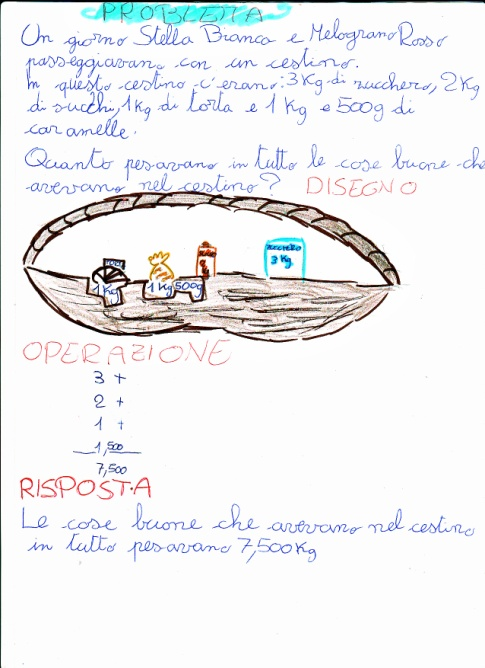 PROBLEMA
Un giorno Stella Bianca e Melograno Rosso
passeggiavano con un cestino.
In questo cestino c'erano: 3 Kg di zucchero, 2 Kg
di succhi, 1 Kg di torta e 1 Kg e 500g di
caramelle.
Quanto pesavano in tutto le cose buone che
avevano nel cestino? DISEGNO
zucchero
3 Kg
1 Kg
1 Kg 500g
OPERAZIONE
3 +
2 +
1 +
1,500
7,500
RISPOSTA
Le cose buone che avevano nel cestino
in tutto pesavano 7,500 Kg